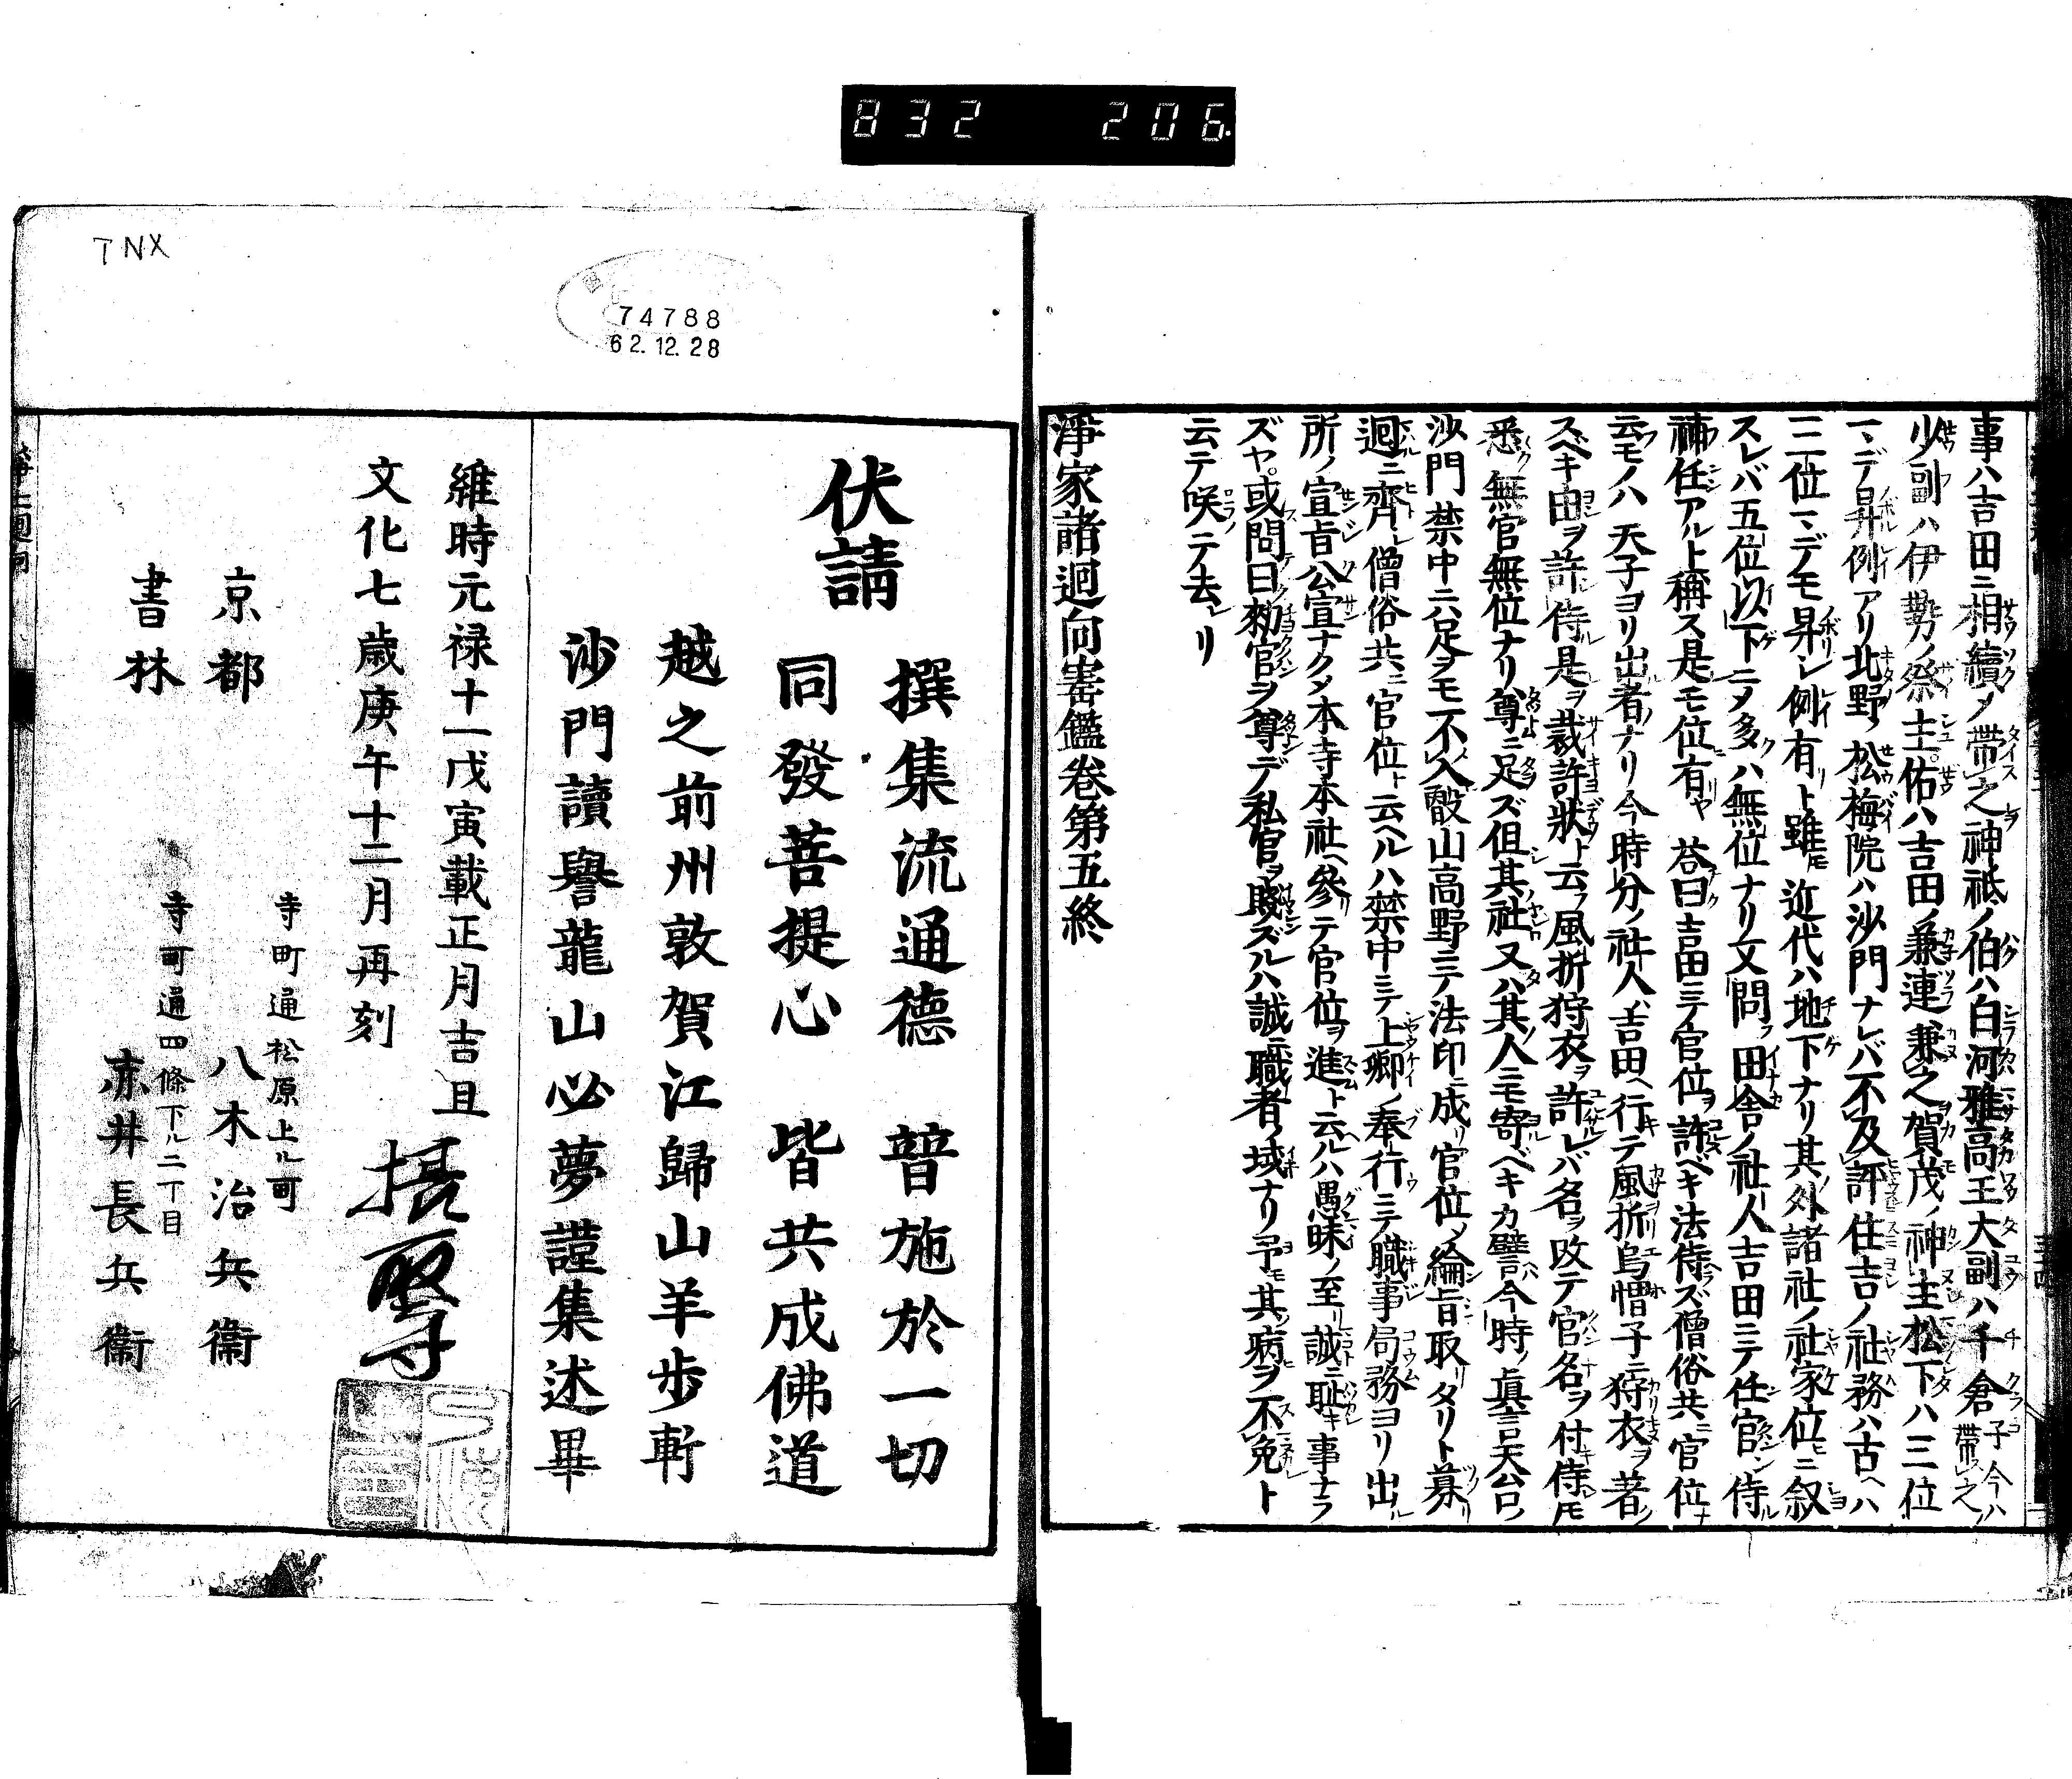 832 206
事ハ吉田ニ相續メ帶之神祇ノ伯ハ白河雅高王大副ハ千倉子今ハ帶之
少副ハ伊勢ノ祭主佑ハ吉田ノ兼連兼之賀茂ノ神主松下ハ三位
マデ昇例アリ北野ノ松梅院ハ沙門ナレバ不及評住吉ノ社務ハ古ヘハ
三位マデモ昇シ例有ト雖近代ハ地下ナリ其外諸社ノ社家位ニ叙
スレバ五位以下ニメ多ハ無位ナリ文問田舎ノ社人吉田ニテ任官侍
補任アルト稱ス是モ位有ヤ答曰吉田ニテ官位ヲ許ベキ法侍ズ僧俗共ニ官位
云モノハ天子ヨリ出者ナリ今時分ノ社人吉田ヘ行テ風折烏帽子ニ狩衣ヲ著
スベキ由ヲ許侍是ヲ裁許狀ト云フ風折狩衣ヲ許レバ名ヲ改テ官名ヲ付侍モ
悉無官無位ナリ尊ニ足ズ但其社又ハ其人ニモ寄ベキカ譬ハ今時ノ眞言天台ノ
沙門禁中ニハ足ヲモ不入叡山高野ニテ法印ニ成官位ノ綸旨取タリト募
廻ニ齊シ僧俗共ニ官位ト云ヘルハ禁中ニテ上卿ノ奉行ニテ職事局務ヨリ出
所ノ宣旨公宣ナクメ本寺本社ヘ參テ官位ヲ進ト云ルハ愚昧ノ至誠ニ耻キ事ナラ
ズヤ或問曰勅官ヲ尊デ私官ヲ賤ズルハ誠ニ職者ノ域ナリ予モ其病ヲ不免ト
云テ咲テ去レリ
淨家諸廻向寳鑑卷第五終
TNX
74788
62.12.28
伏請
撰集流通德 普施於一切
同發菩提心 皆共成佛道
越之前州敦賀江歸山羊歩軒
沙門讀譽龍山必夢謹集述畢
維時元禄十一戊寅載正月吉旦
文化七歳庚午十二月再刻
京都
寺町通松原上ル町
八木治兵衞
書林
寺町通四條下ル二丁目
赤井長兵衞